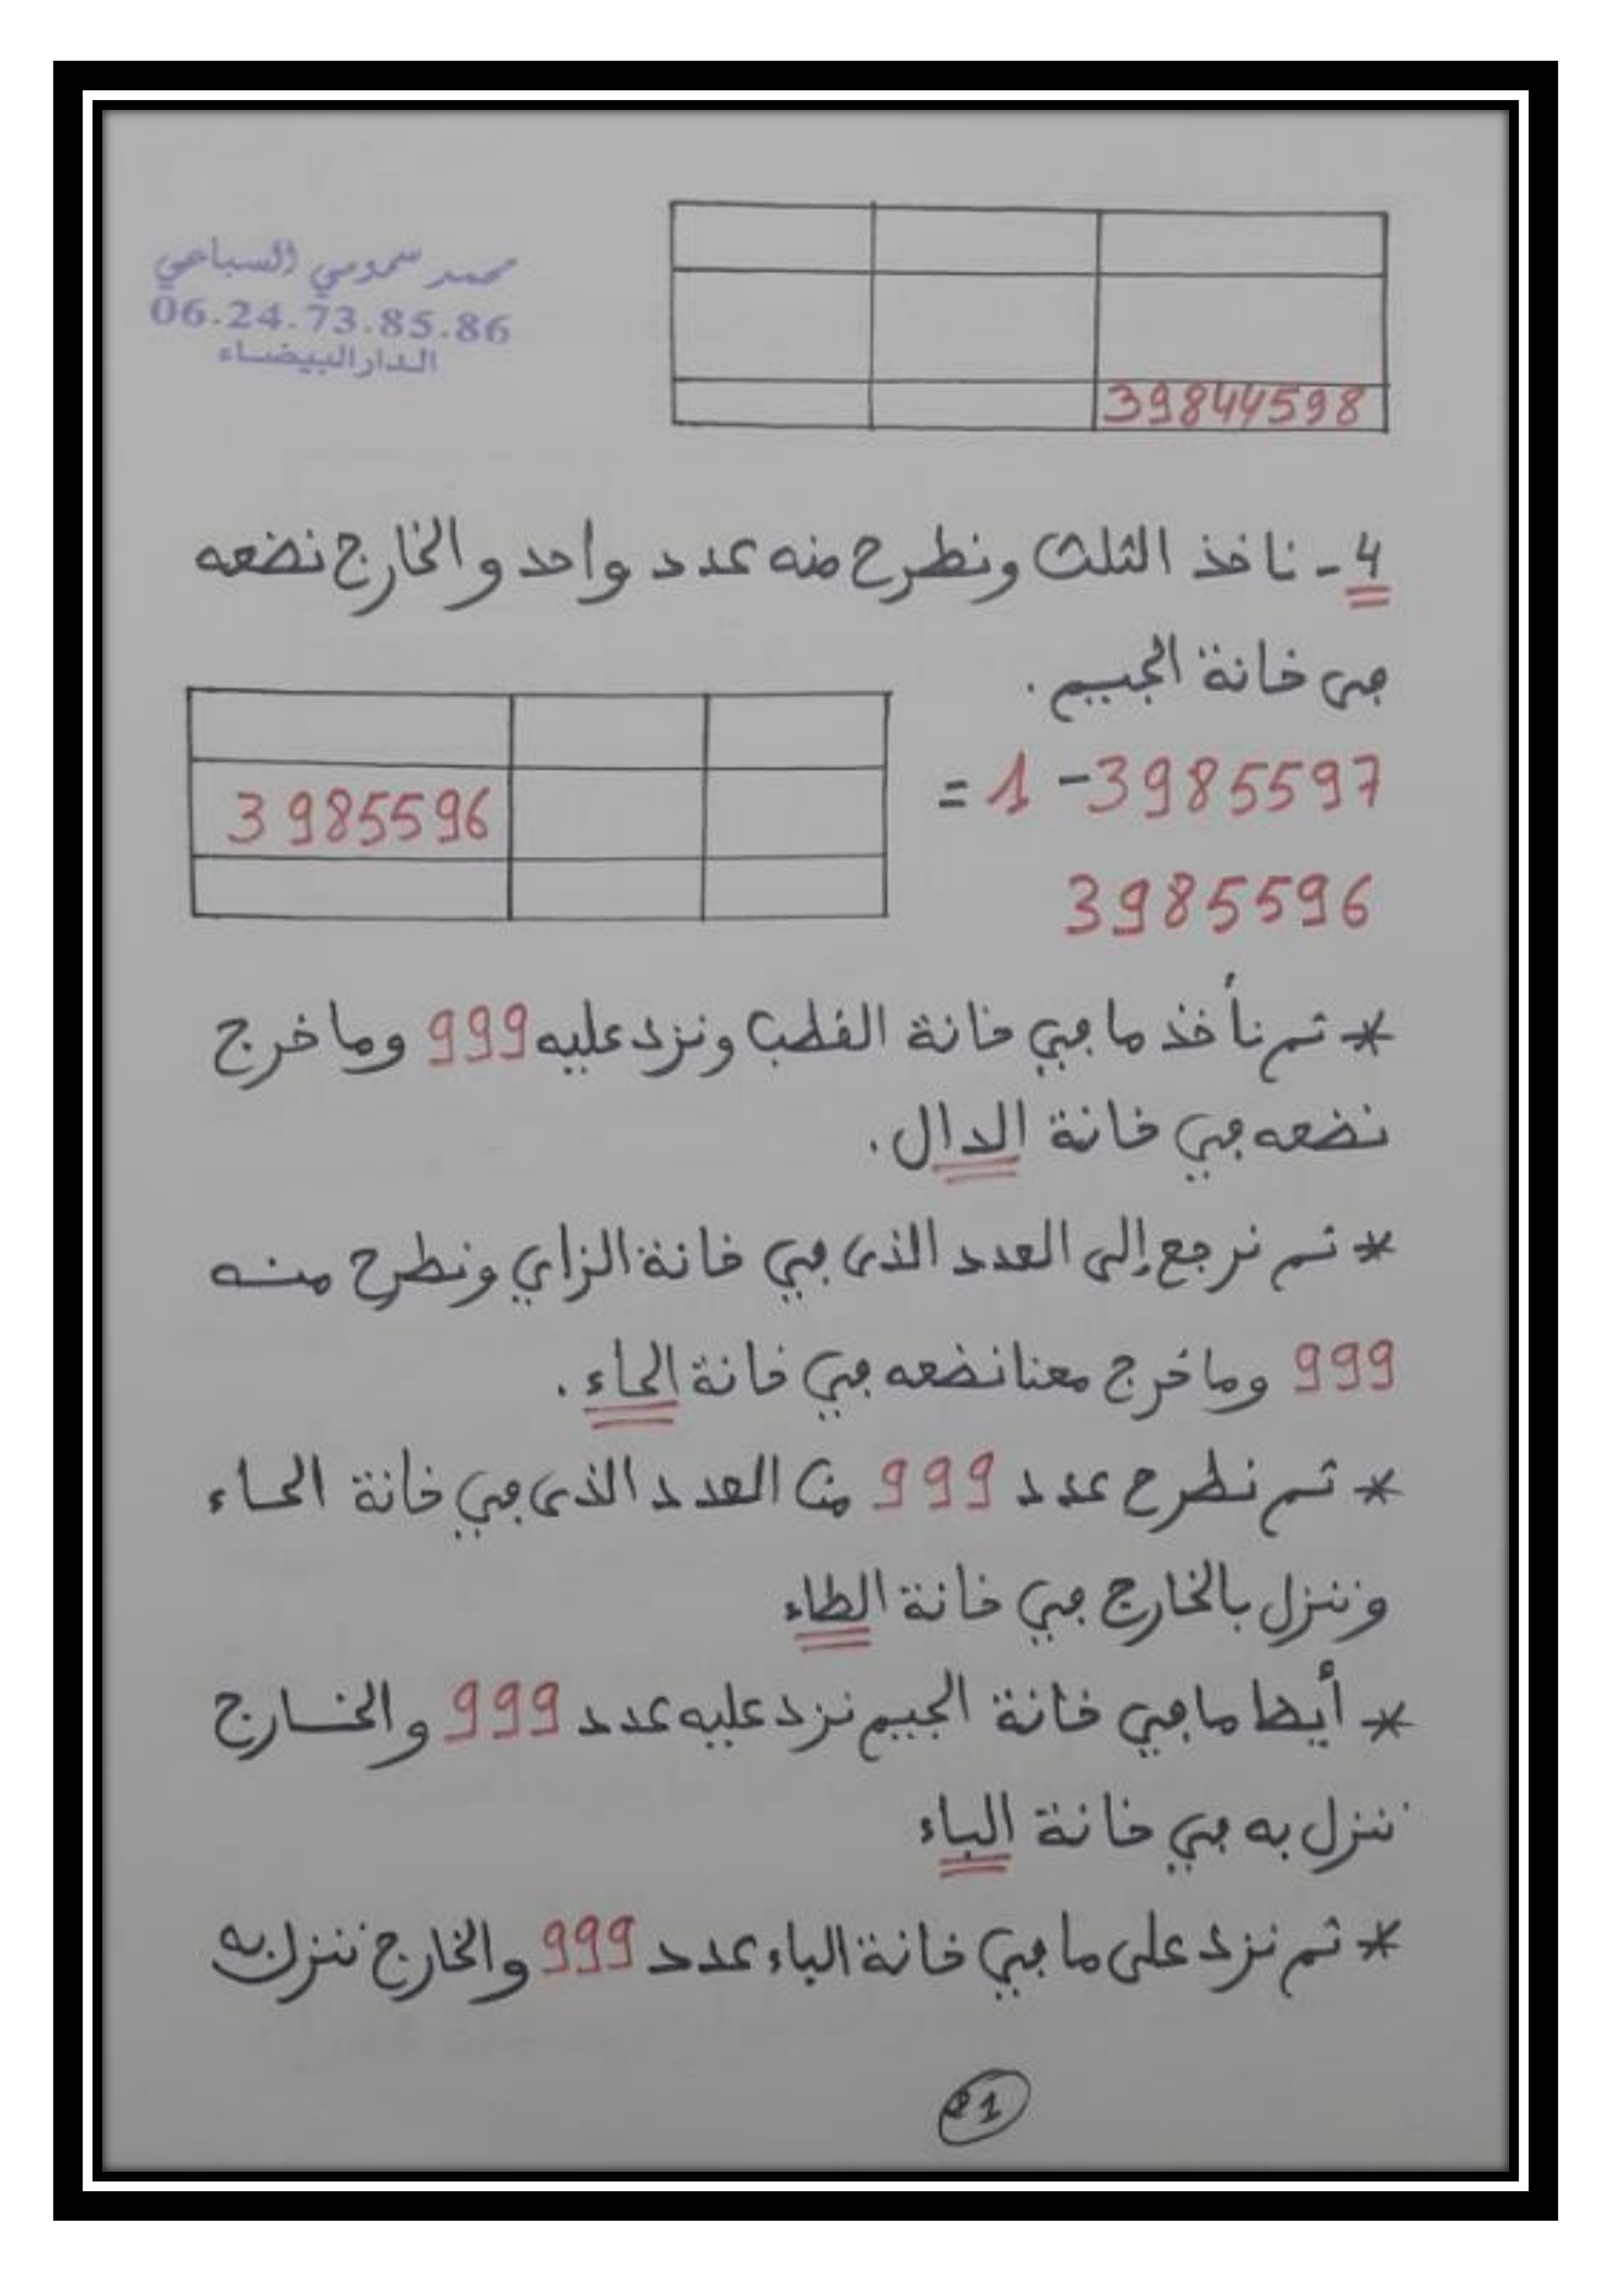 محمد سمومي السباعي
06.24.73.85.86
الدار البيضاء
39844598
4- ناخذ الثلث ونطرح منه عدد واحد والخارج نضعه
في خانة الجيم.
3985597 - 1 =
3985596
3985596
* تم نأخذ ما في خانة القطب ونزد عليه 999 وما خرج
نضعه في خانة الدال.
* تم نرجع إلى العدد الذي في خانة الزاي ونطرح منه
999 وما خرج معنا نضعه في خانة الحاء.
* تم نطرح عدد 999 من العدد الذي في خانة الحاء
وننزل بالخارج في خانة الطاء
* أيظا ما في خانة الجيم نزد عليه عدد 999 والخارج
ننزل به في خانة الباء
* تم نزد على ما في خانة الباء عدد 999 والخارج ننزل به